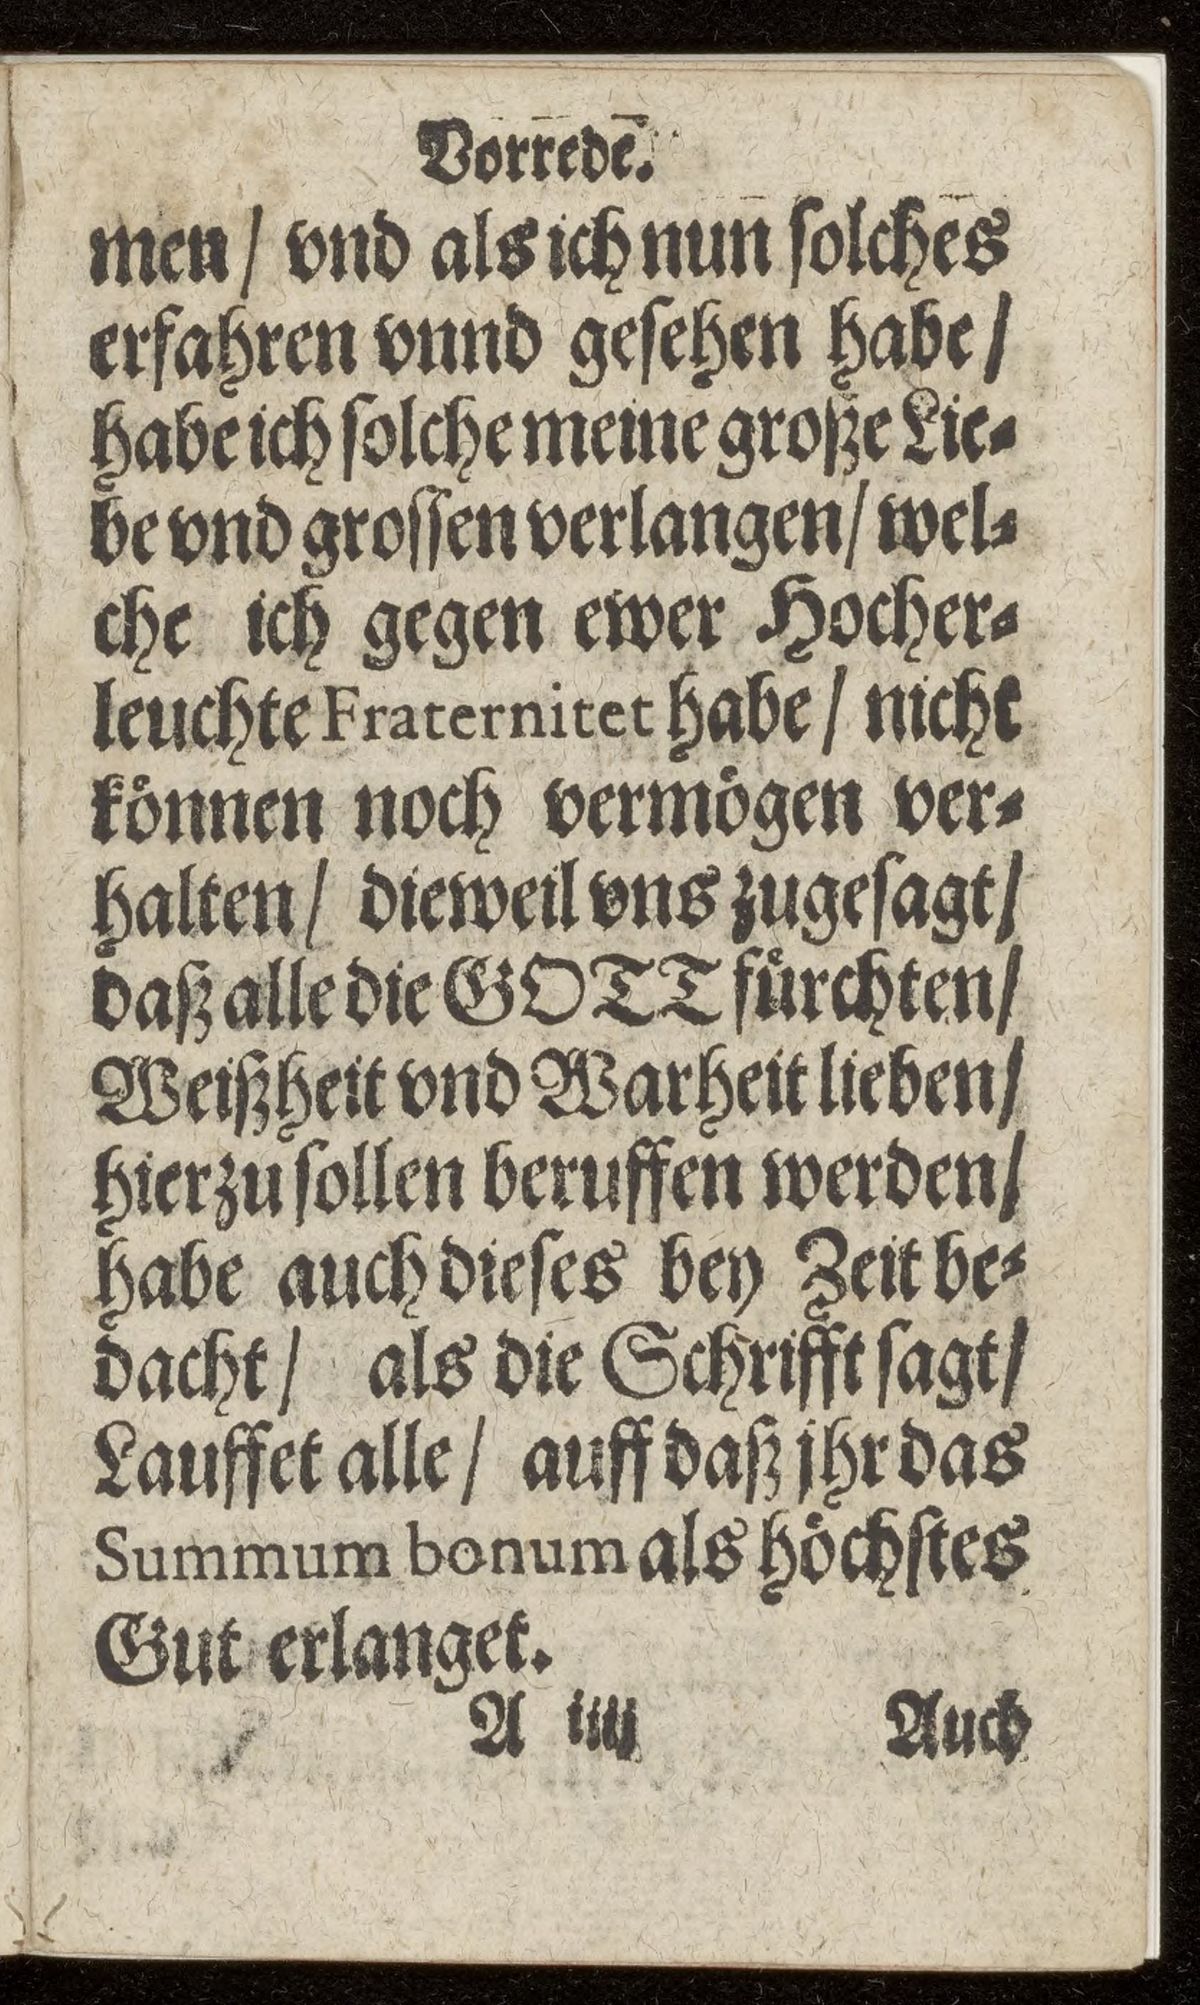 Vorrede.
men/ vnd als ich nun solches
erfahren vnnd gesehen habe/
habe ich solche meine große Lie-
be vnd grossen verlangen/ wel-
che ich gegen ewer Hocher-
leuchte Fraternitet habe/ nicht
können noch vermögen ver-
halten/ dieweil vns zugesagt/
daß alle die GOTT fürchten/
Weißheit vnd Warheit lieben/
hierzu sollen beruffen werden/
habe auch dieses bey Zeit be-
dacht/ als die Schrifft sagt/
Lauffet alle/ auff daß jhr das
Summum bonum als höchstes
Gut erlanget.
A iiij Auch